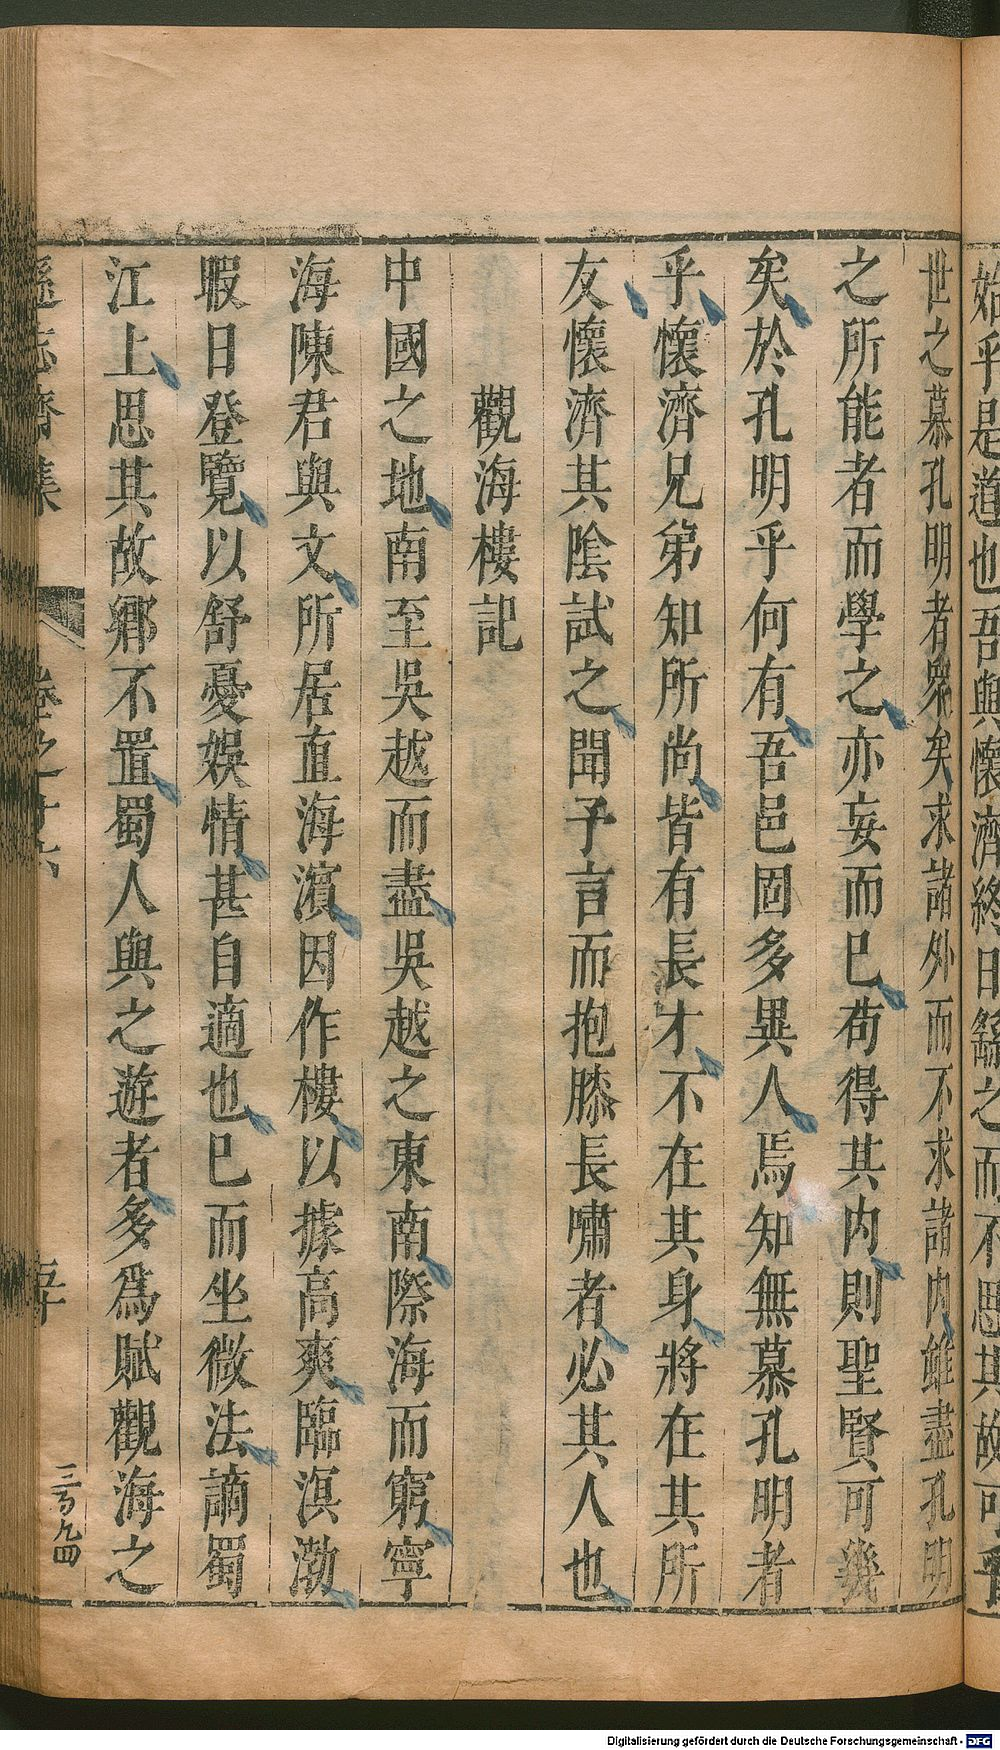 始乎是道也吾與懷濟終日繇之而不思其故可乎
世之慕孔明者衆矣求諸外而不求諸内雖盡孔明
之所能者而學之亦妄而已苟得其内則聖賢可幾
矣於孔明乎何有吾邑固多異人焉知無慕孔明者
乎懷濟兄弟知所尚皆有長才不在其身將在其所
友懷濟其陰試之聞予言而抱膝長嘯者必其人也
觀海樓記
中國之地南至吳越而盡吳越之東南際海而窮寧
海陳君與文所居直海濵因作樓以據高爽臨溟渤
暇日登覽以舒憂娛情甚自適也已而坐微法謫蜀
江上思其故鄉不置蜀人與之遊者多爲賦觀海之
遜志齋集
卷之十六
五十
三百九四
Digitalisierung gefördert durch die Deutsche Forschungsgemeinschaft - DFG